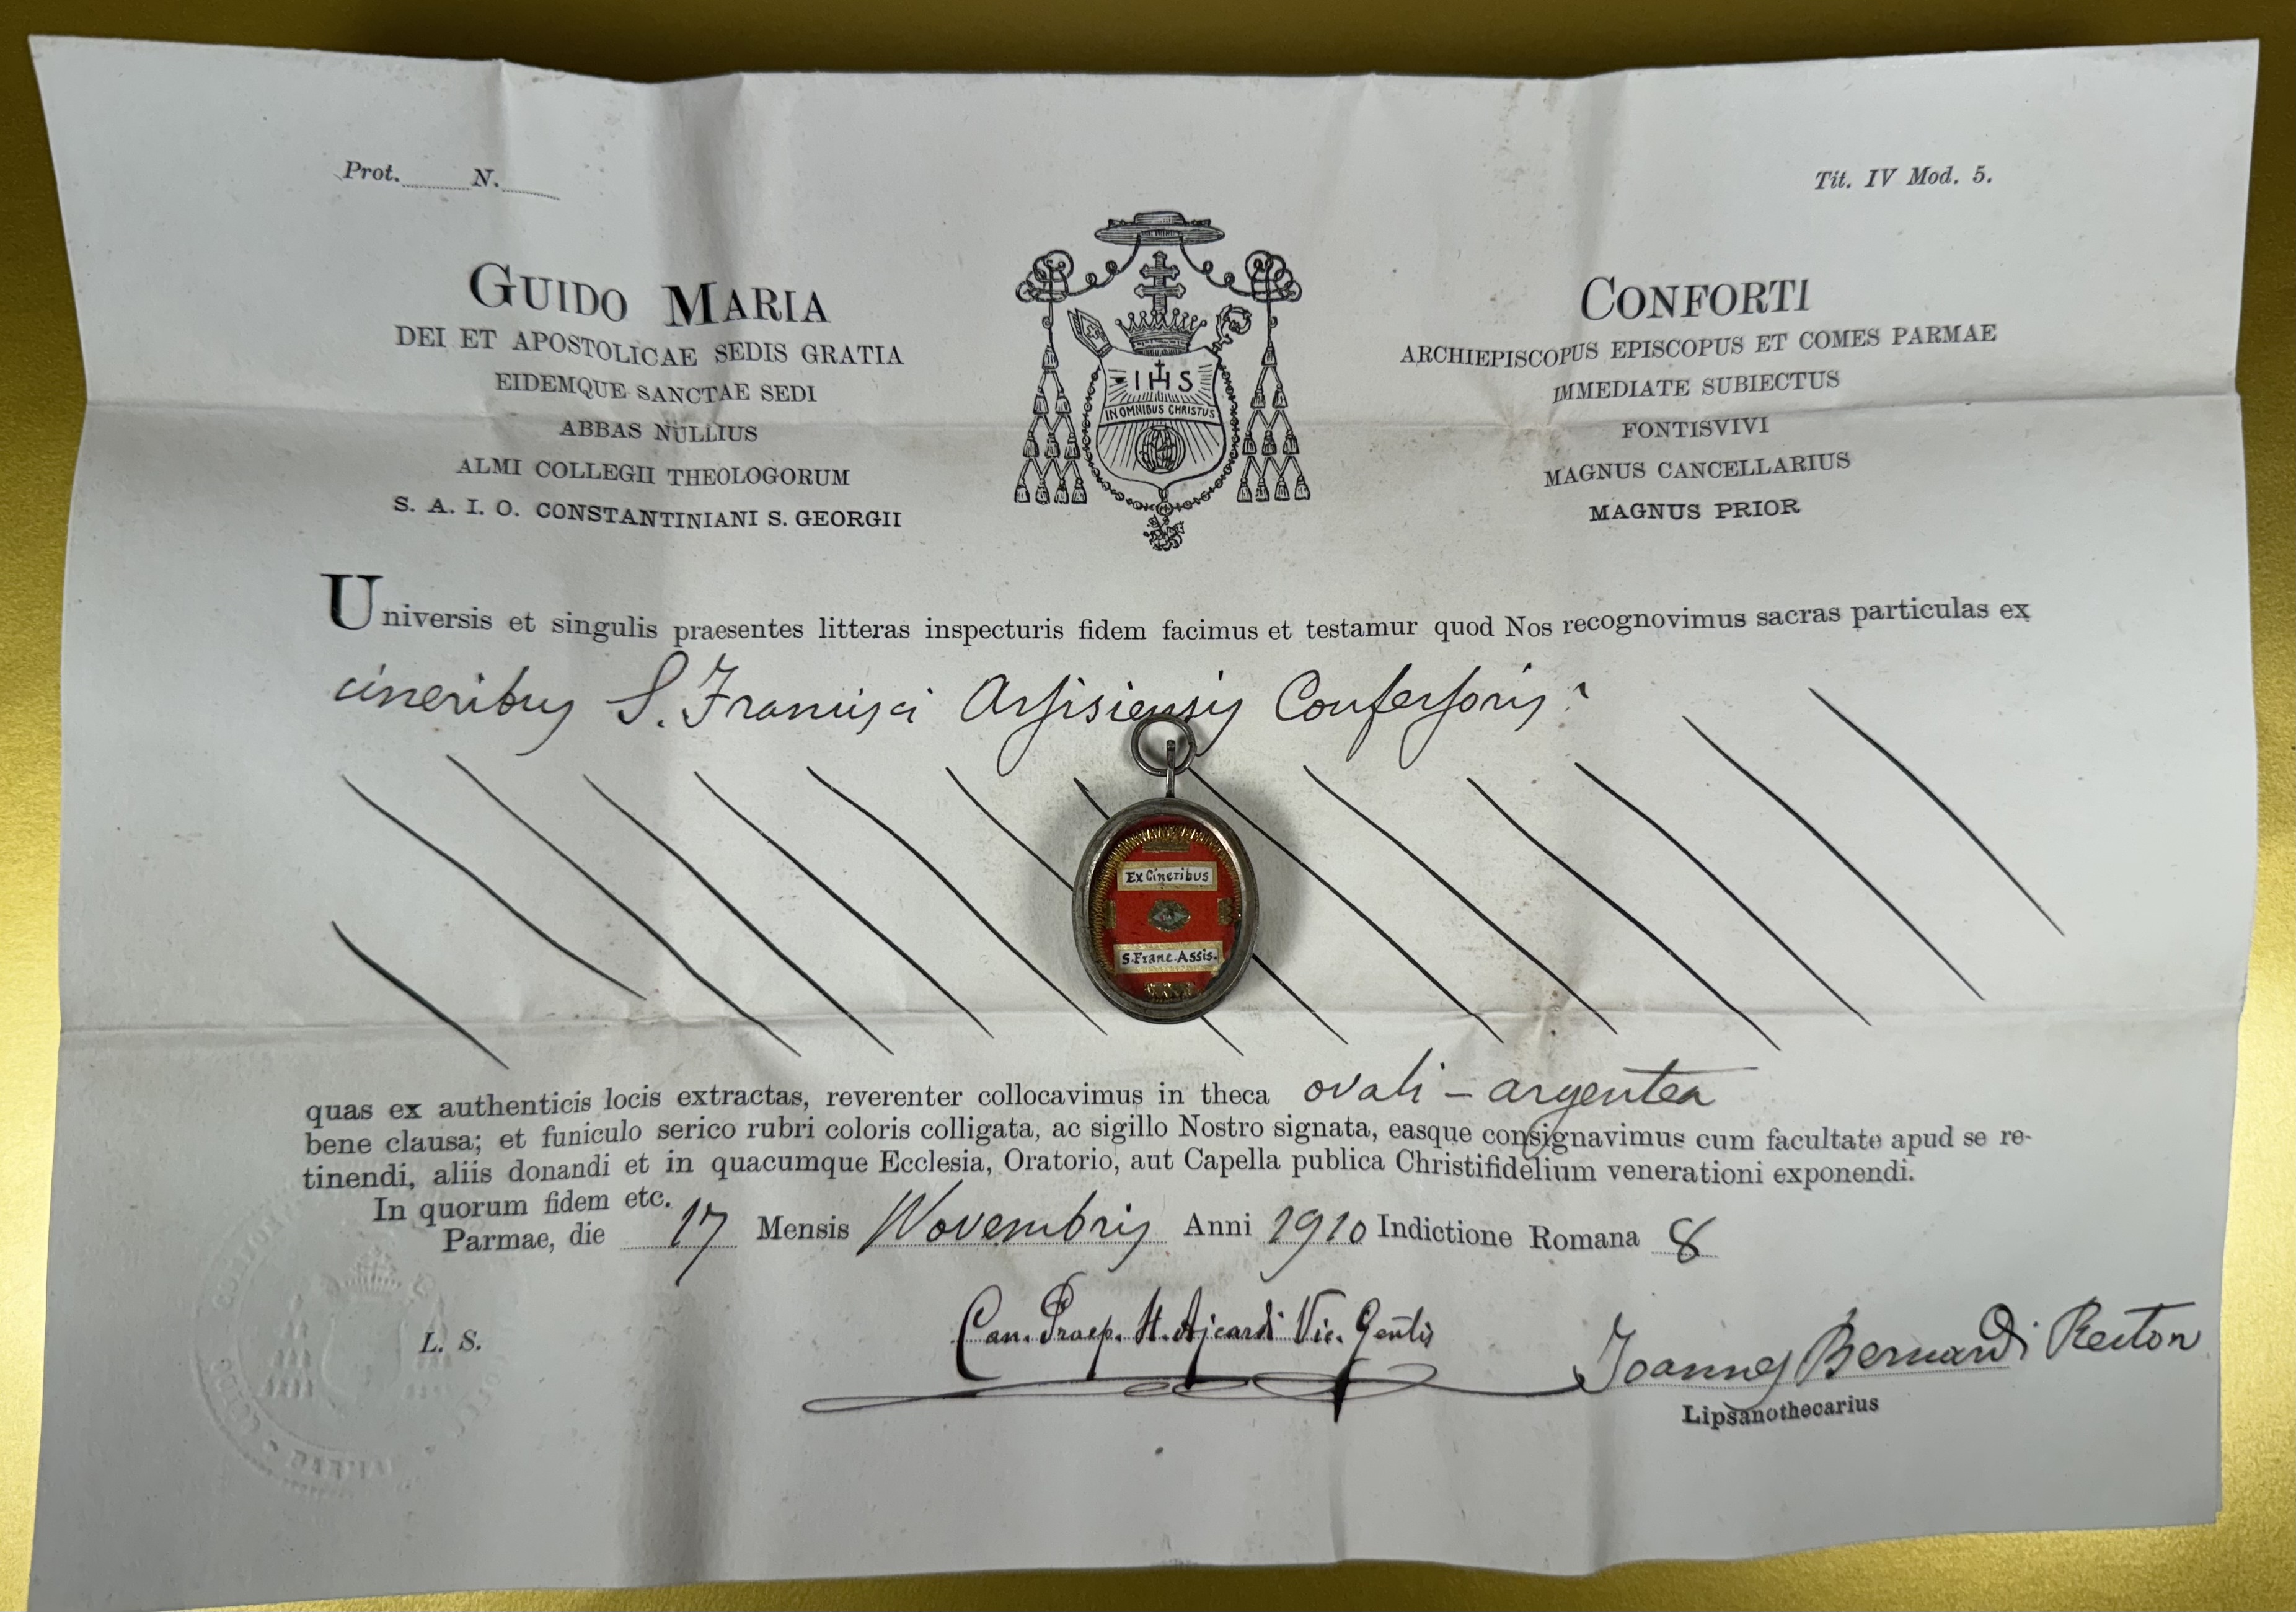 Prot. N.
Tit. IV Mod. 5.
GUIDO MARIA CONFORTI
DEI ET APOSTOLICAE SEDIS GRATIA ARCHIEPISCOPUS EPISCOPUS ET COMES PARMAE
EIDEMQUE SANCTAE SEDI IMMEDIATE SUBIECTUS
ABBAS NULLIUS FONTISVIVI
ALMI COLLEGII THEOLOGORUM MAGNUS CANCELLARIUS
S. A. I. O. CONSTANTINIANI S. GEORGII MAGNUS PRIOR
IHS
IN OMNIBUS CHRISTUS
Universis et singulis praesentes litteras inspecturis fidem facimus et testamur quod Nos recognovimus sacras particulas ex
cineribus S. Francisci Assisiensis Confessoris
Ex Cineribus
S. Franc. Assis.
quas ex authenticis locis extractas, reverenter collocavimus in theca ovali - argentea
bene clausa; et funiculo serico rubri coloris colligata, ac sigillo Nostro signata, easque consignavimus cum facultate apud se re-
tinendi, aliis donandi et in quacumque Ecclesia, Oratorio, aut Capella publica Christifidelium venerationi exponendi.
In quorum fidem etc.
Parmae, die 17 Mensis Novembris Anni 1910 Indictione Romana 8
L. S.
Can. Praep. H. Ajcardi Vic. Gen̄lis
Joannes Bernardi Rector
Lipsanothecarius